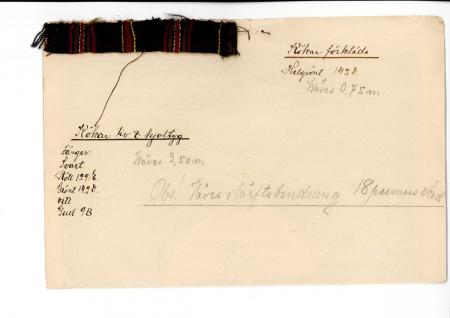 Kökar förkläde
Helgrönt 1420.
Väves 0,75 m
Kökar liv & kjoltyg
Färger:
Svart
Rött 129/2
Grönt 1420.
vitt
Gult 9B
Väves 3,50 m
Obs! Väves i tuskaftsbindning 18